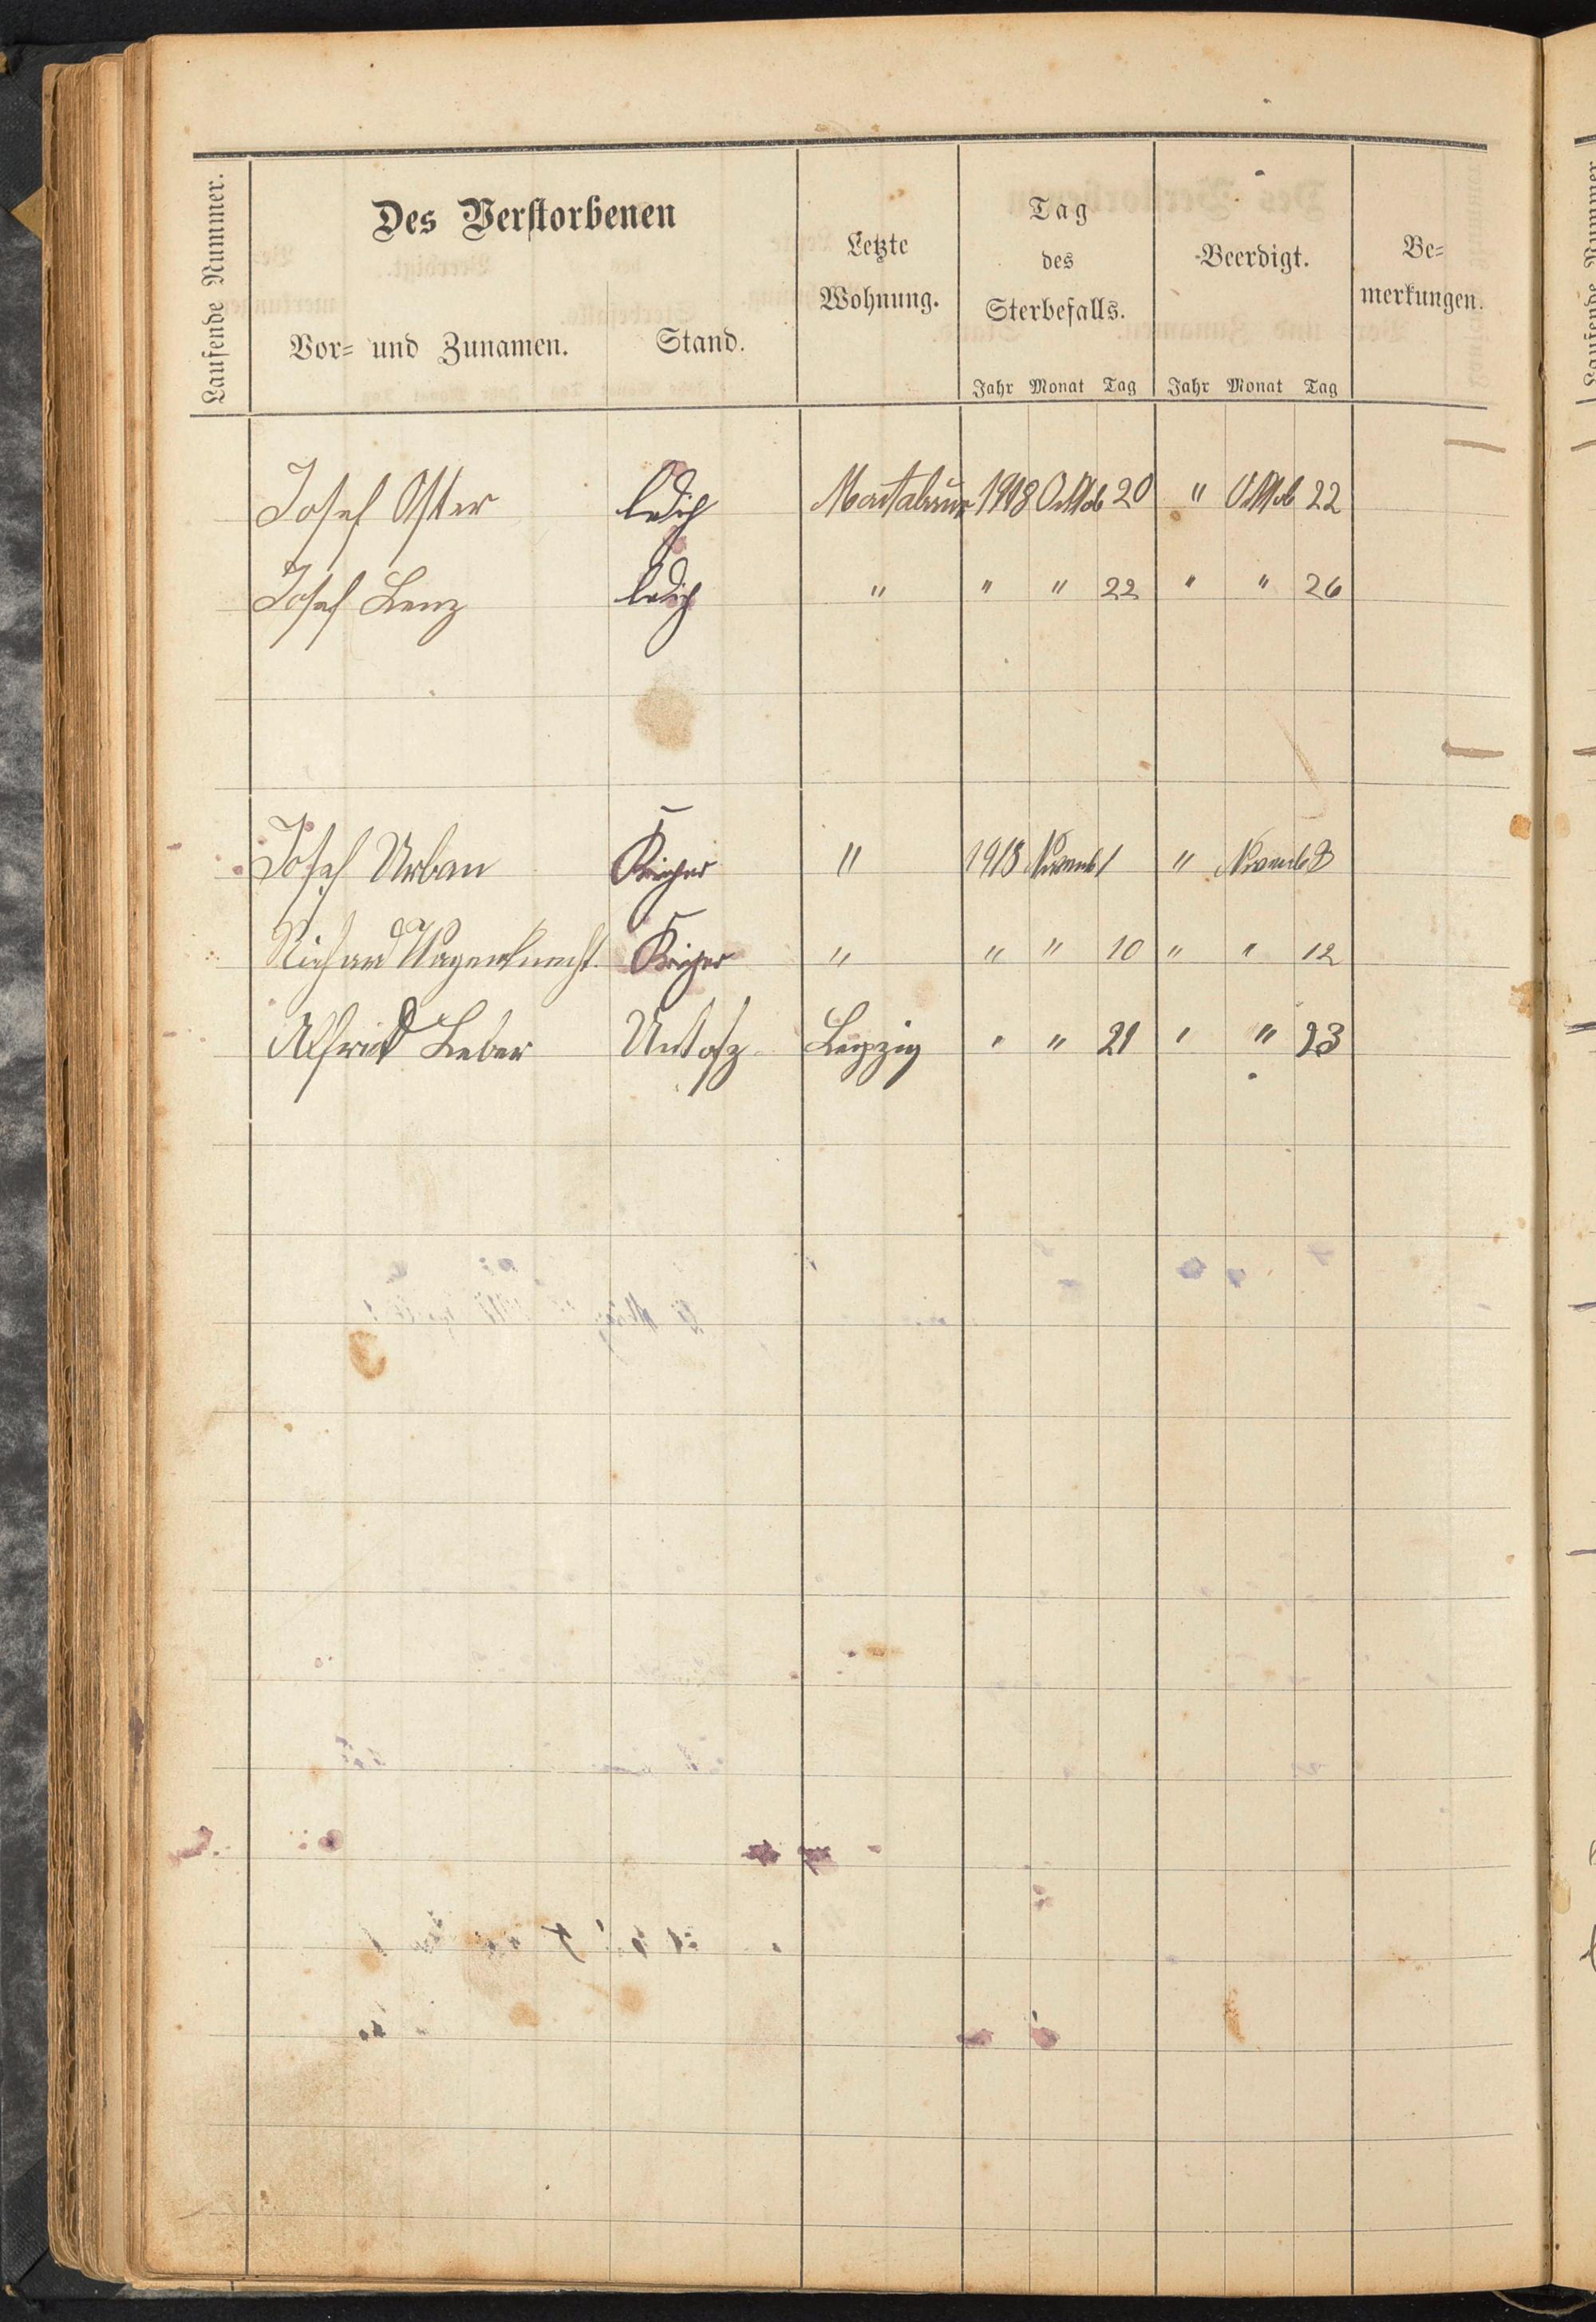 Laufende Nummer.
Des Verstorbenen
Vor= und Zunamen.
Stand.
Letzte
Wohnung.
Tag
des
Sterbefalls.
Jahr Monat Tag
Beerdigt.
Jahr Monat Tag
Be=
merkungen.
Josef Oster ledig 1918 Oktob 20 " Oktob 22
Josef Lenz ledig " " " 22 " " 26
Josef Urban Krieger " 1918 Novemb 1 " Novemb 3
Richard Wagenknecht. Krieger " " " 10 " " 12
Alfried Leber Untofz Leipzig " " 21 " " 23